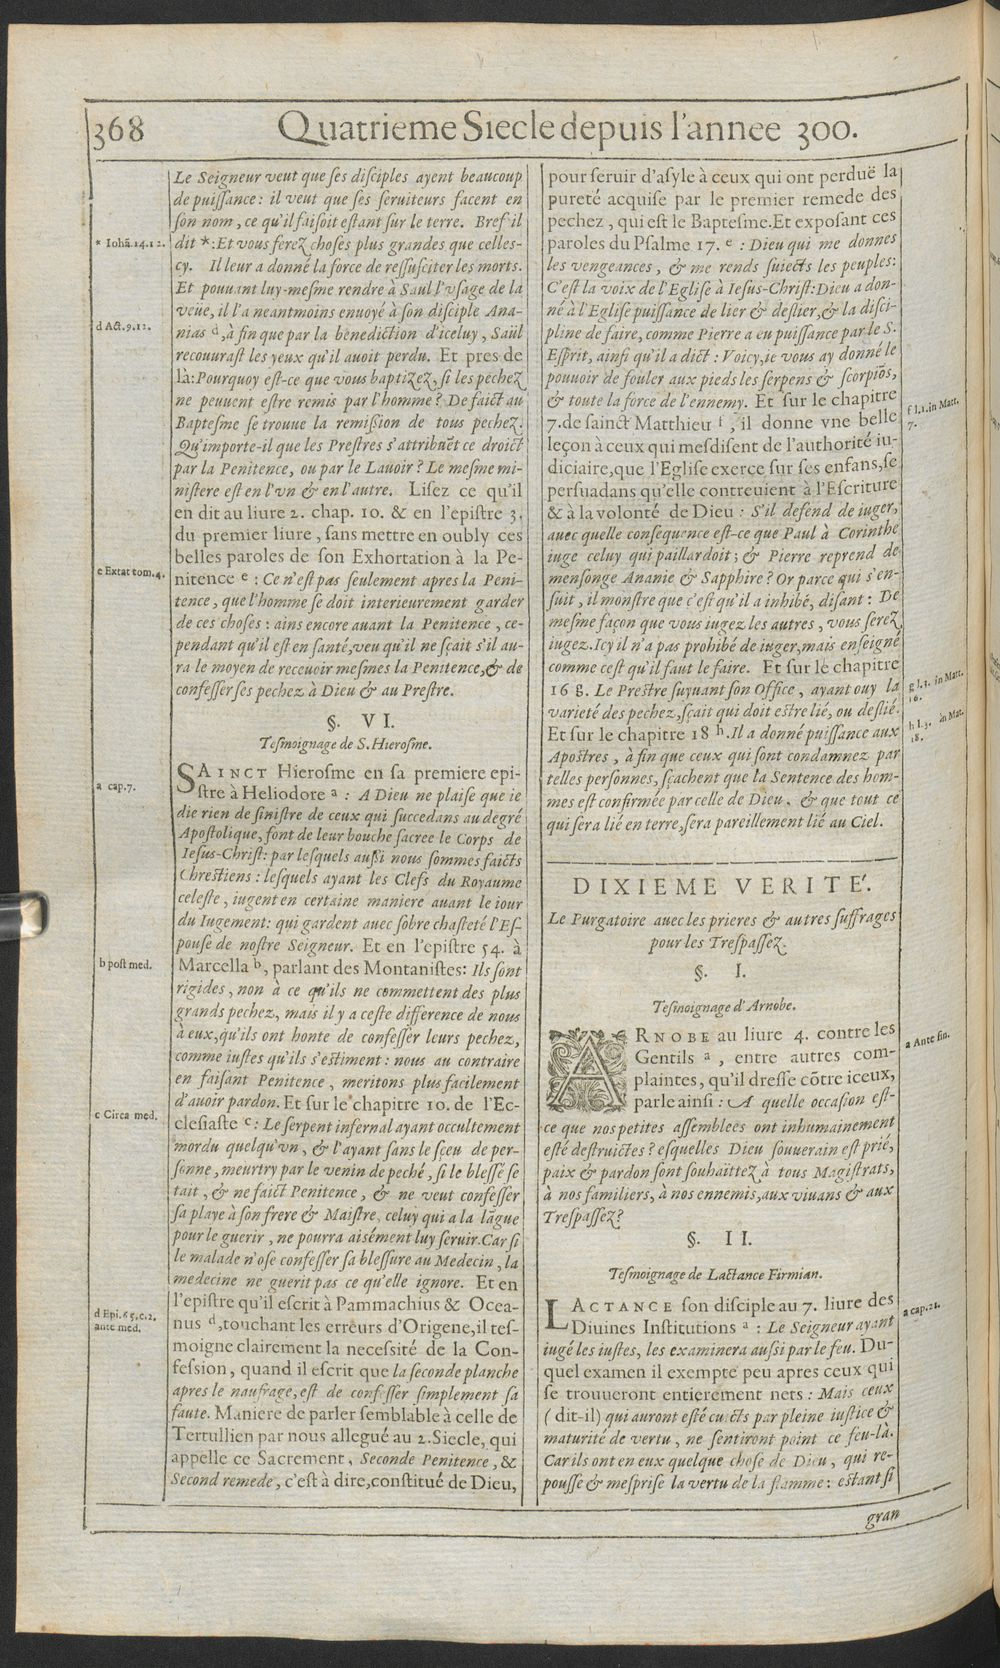 368
Quatrieme Siecle depuis l'annee 300.
Le Seigneur veut que ses disciples ayent beaucoup
de puissance: il veut que ses seruiteurs facent en
son nom, ce qu'il faisoit estant sur le terre. Bref il
* Iohã.14.12.
dit *: Et vous ferez choses plus grandes que celles-
cy. Il leur a donné la force de ressusciter les morts.
Et pouuant luy-mesme rendre à Saul l'vsage de la
veüe, il l'a neantmoins enuoyé à son disciple Ana-
d Act.9.12.
nias d, à fin que par la benediction d'iceluy, Saül
recouurast les yeux qu'il auoit perdu. Et pres de
là: Pourquoy est-ce que vous baptizez, si les pechez
ne peuuent estre remis par l'homme? De faict au
Baptesme se trouue la remission de tous pechez.
Qu'importe-il que les Prestres s'attribuẽt ce droict
par la Penitence, ou par le Lauoir? Le mesme mi-
nistere est en l'vn & en l'autre. Lisez ce qu'il
en dit au liure 2. chap. 10. & en l'epistre 3.
du premier liure, sans mettre en oubly ces
belles paroles de son Exhortation à la Pe-
e Extat tom.4.
nitence e : Ce n'est pas seulement apres la Peni-
tence, que l'homme se doit interieurement garder
de ces choses: ains encore auant la Penitence, ce-
pendant qu'il est en santé, veu qu'il ne sçait s'il au-
ra le moyen de receuoir mesmes la Penitence, & de
confesser ses pechez à Dieu & au Prestre.
§. VI.
Tesmoignage de S. Hierosme.
SAINCT Hierosme en sa premiere epi-
a cap.7.
stre à Heliodore a : A Dieu ne plaise que ie
die rien de sinistre de ceux qui succedans au degré
Apostolique, font de leur bouche sacree le Corps de
Iesus-Christ: par lesquels aussi nous sommes faicts
Chrestiens: lesquels ayant les Clefs du Royaume
celeste, iugent en certaine maniere auant le iour
du Iugement: qui gardent auec sobre chasteté l'Es-
pouse de nostre Seigneur. Et en l'epistre 54. à
b post med.
Marcella b, parlant des Montanistes: Ils sont
rigides, non à ce qu'ils ne commettent des plus
grands pechez, mais il y a ceste difference de nous
à eux, qu'ils ont honte de confesser leurs pechez,
comme iustes qu'ils s'estiment: nous au contraire
en faisant Penitence, meritons plus facilement
d'auoir pardon. Et sur le chapitre 10. de l'Ec-
c Circa med.
clesiaste c: Le serpent infernal ayant occultement
mordu quelqu'vn, & l'ayant sans le sçeu de per-
sonne, meurtry par le venin de peché, si le blessé se
tait, & ne faict Penitence, & ne veut confesser
sa playe à son frere & Maistre, celuy qui a la lãgue
pour le guerir, ne pourra aisément luy seruir. Car si
le malade n'ose confesser sa blessure au Medecin, la
medecine ne guerit pas ce qu'elle ignore. Et en
l'epistre qu'il escrit à Pammachius & Ocea-
d Epi.65.c.2.
ante med.
nus d, touchant les erreurs d'Origene, il tes-
moigne clairement la necessité de la Con-
fession, quand il escrit que la seconde planche
apres le naufrage, est de confesser simplement sa
faute. Maniere de parler semblable à celle de
Tertullien par nous allegué au 2. Siecle, qui
appelle ce Sacrement, Seconde Penitence, &
Second remede, c'est à dire, constitué de Dieu,
pour seruir d'asyle à ceux qui ont perduë la
pureté acquise par le premier remede des
pechez, qui est le Baptesme. Et exposant ces
paroles du Psalme 17. e : Dieu qui me donnes
les vengeances, & me rends suiects les peuples:
C'est la voix de l'Eglise à Iesus-Christ: Dieu a don-
né à l'Eglise puissance de lier & deslier, & la disci-
pline de faire, comme Pierre a eu puissance par le S.
Esprit, ainsi qu'il a dict: Voicy, ie vous ay donné le
pouuoir de fouler aux pieds les serpens & scorpiõs,
& toute la force de l'ennemy. Et sur le chapitre
f l.1.in Matt.
7.
7. de sainct Matthieu f, il donne vne belle
leçon à ceux qui mesdisent de l'authorité iu-
diciaire, que l'Eglise exerce sur ses enfans, se
persuadans qu'elle contreuient à l'Escriture
& à la volonté de Dieu : S'il defend de iuger,
auec quelle consequence est-ce que Paul à Corinthe
iuge celuy qui paillardoit; & Pierre reprend de
mensonge Ananie & Sapphire? Or parce qui s'en-
suit, il monstre que c'est qu'il a inhibé, disant: De
mesme façon que vous iugez les autres, vous serez
iugez. Icy il n'a pas prohibé de iuger, mais enseigné
comme cest qu'il faut le faire. Et sur le chapitre
g l.3. in Matt.
16.
16 g. Le Prestre suyuant son Office, ayant ouy la
varieté des pechez, sçait qui doit estre lié, ou deslié.
h l.3. in Mat.
18.
Et sur le chapitre 18 h. Il a donné puissance aux
Apostres, à fin que ceux qui sont condamnez par
telles personnes, sçachent que la Sentence des hom-
mes est confirmée par celle de Dieu, & que tout ce
qui sera lié en terre, sera pareillement lié au Ciel.
DIXIEME VERITE'.
Le Purgatoire auec les prieres & autres suffrages
pour les Trespassez.
§. I.
Tesmoignage d'Arnobe.
ARNOBE au liure 4. contre les
a Ante fin.
Gentils a , entre autres com-
plaintes, qu'il dresse cõtre iceux,
parle ainsi: A quelle occasion est-
ce que nos petites assemblees ont inhumainement
esté destruictes? esquelles Dieu souuerain est prié,
paix & pardon sont souhaittez à tous Magistrats,
à nos familiers, à nos ennemis, aux viuans & aux
Trespassez?
§. II.
Tesmoignage de Lactance Firmian.
LACTANCE son disciple au 7. liure des
a cap.21.
Diuines Institutions a : Le Seigneur ayant
iugé les iustes, les examinera aussi par le feu. Du-
quel examen il exempte peu apres ceux qui
se trouueront entierement nets : Mais ceux
(dit-il) qui auront esté cuicts par pleine iustice &
maturité de vertu, ne sentiront point ce feu-là.
Car ils ont en eux quelque chose de Dieu, qui re-
pousse & mesprise la vertu de la flamme: estant si
gran